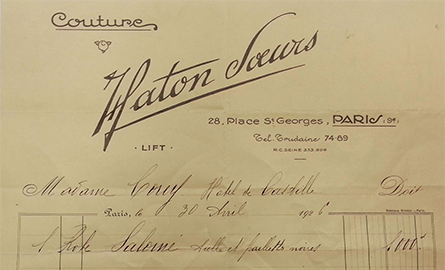 Couture
Haton Sœurs
28, Place St Georges, PARIS (9e)
Tel. Trudaine 74-89
- LIFT -
R.C. SEINE 353.806
Madame Hotel de Castille Doit
Paris, le 30 Avril 1926
1 Robe Salomé tulle et paillettes noires 1.000